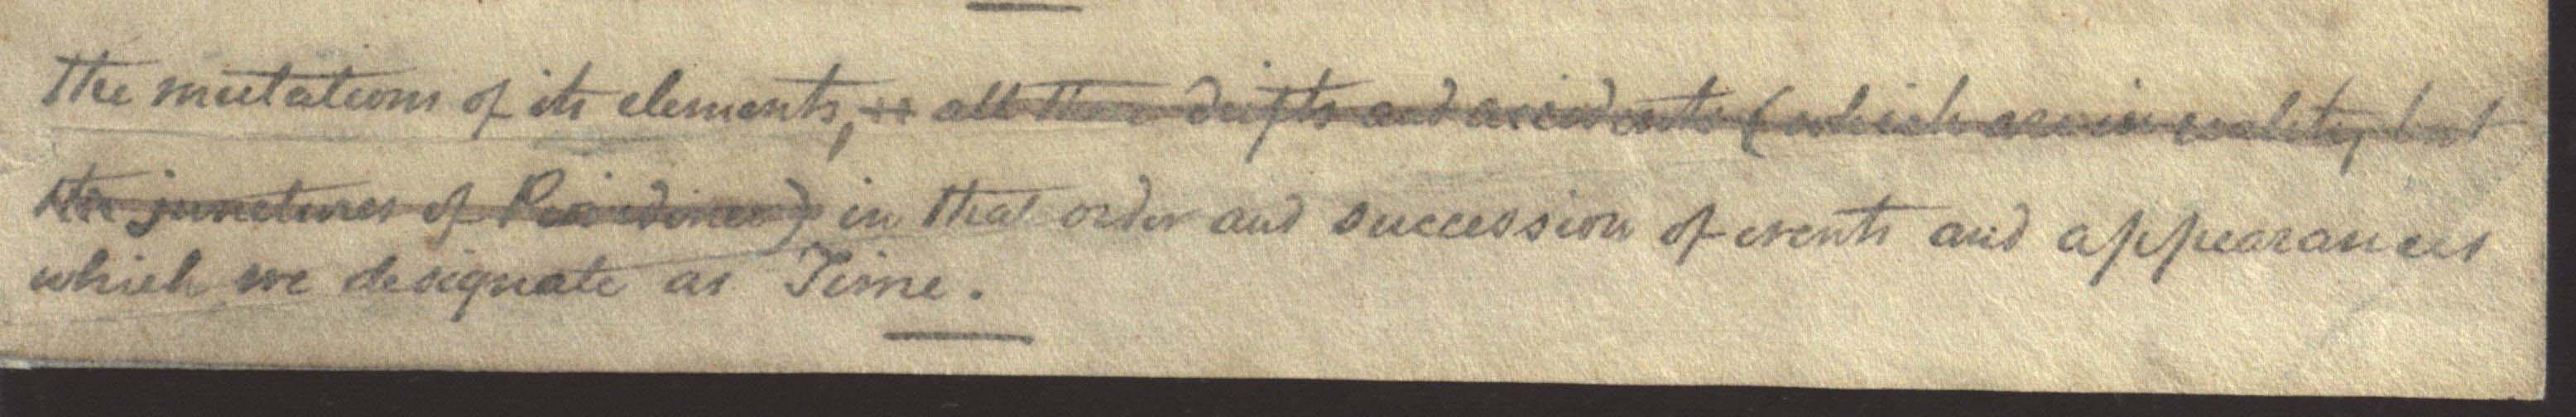 The mutations of its elements, all these drifts and accidents (which are in reality but
the junctures of Providence) in that order and succession of events and appearances
which we designate as Time.